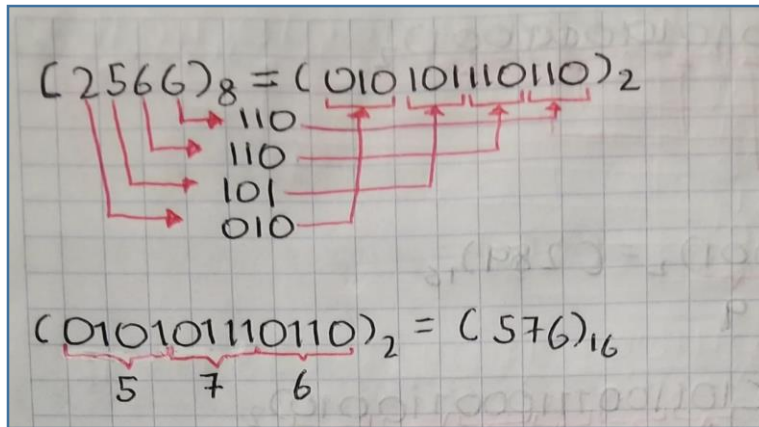 (2566)₈ = (010101110110)₂
110
110
101
010
(010101110110)₂ = (576)₁₆
5 7 6